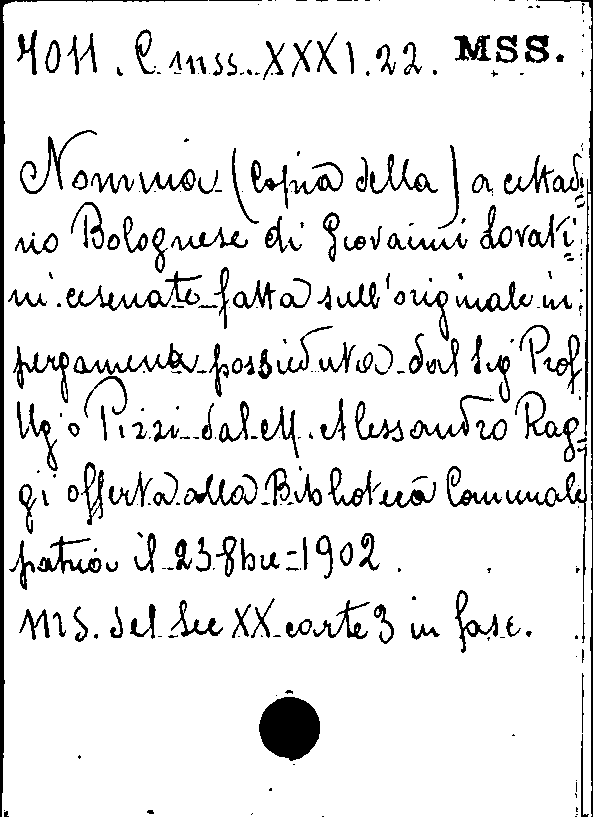 4011. C. mss. XXXI. 22. MSS.
Nomina (Copia della) a cittadi=
no Bolognese di Giovanni Lovati=
ni cesenate fatta sull'originale in
pergamena posseduta dal Sig Prof
Ugo Pizzi dal M. Alessandro Rag=
gi offerta alla Biblioteca Comunale
patria il 23 8bre=1902.
MS. del Sec XX carte 3 in fasc.